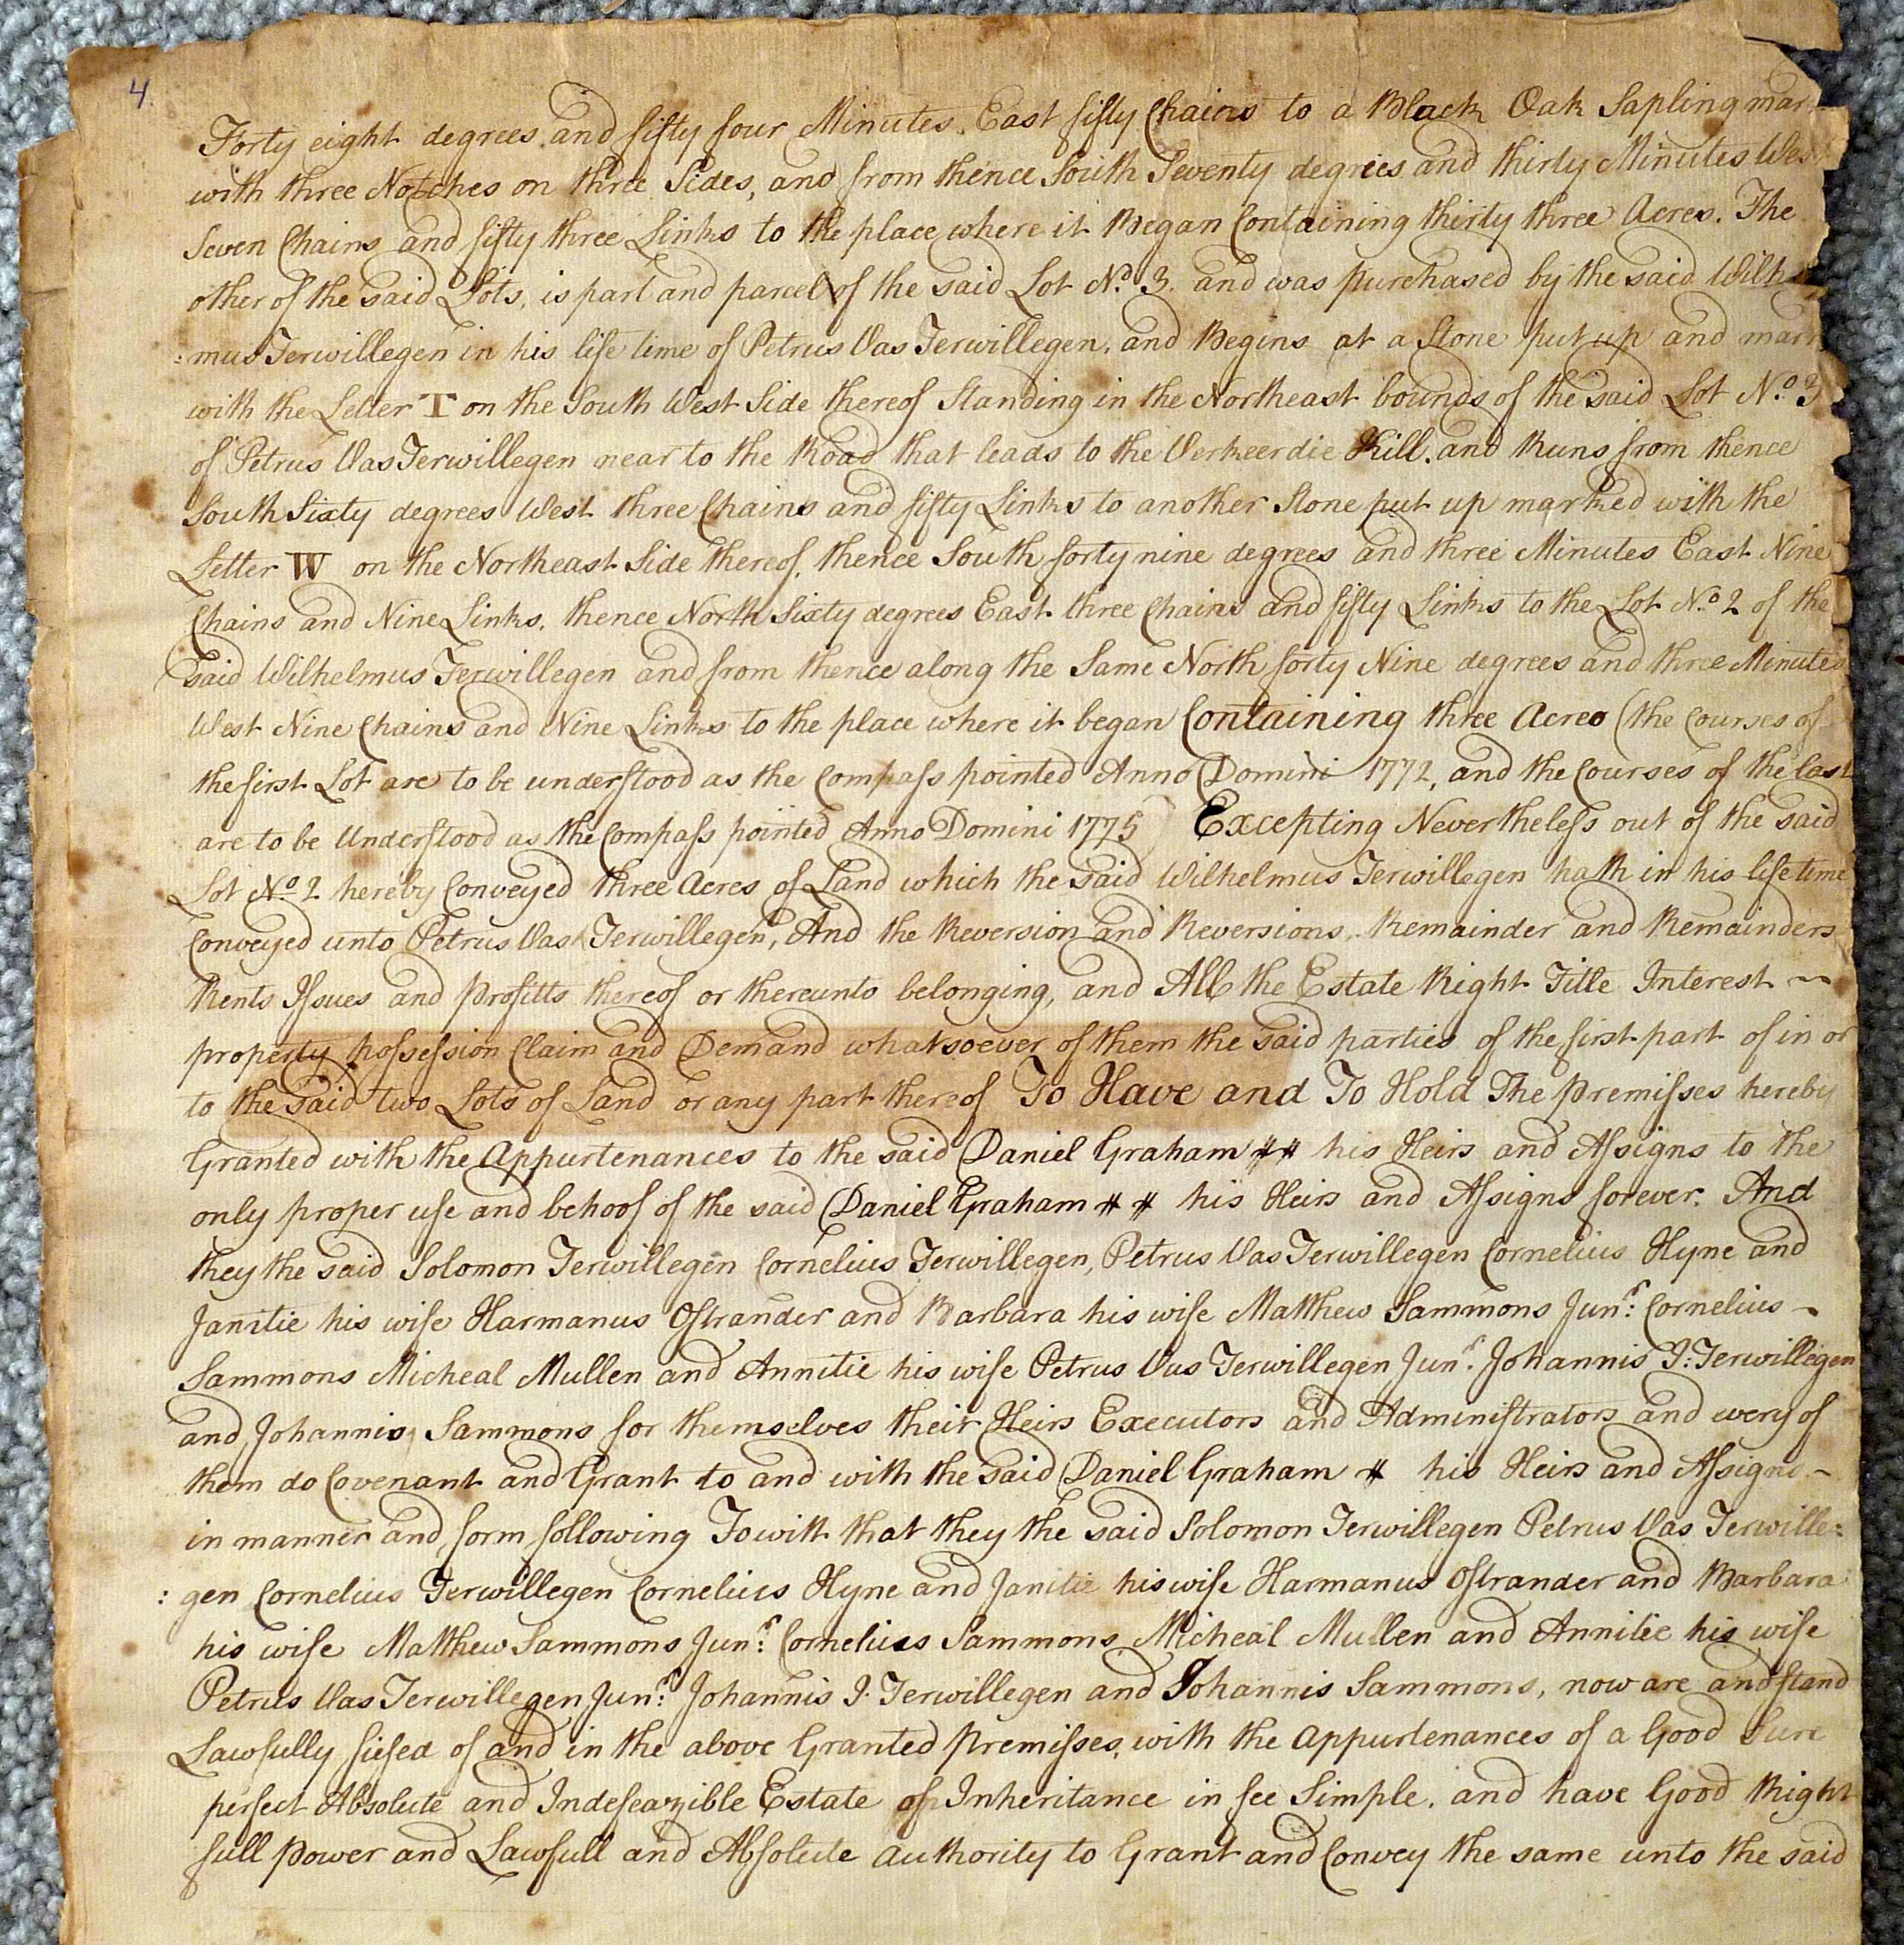 4.
Forty eight degrees and fifty four Minutes East fifty Chains to a Black Oak Sapling mar
with three Notches on three Sides, and from thence South Seventy degrees and thirty Minutes Wes
Seven Chains and fifty three Links to the place where it Began Containing thirty three Acres. The
other of the said Lots, is part and parcel of the said Lot No. 3. and was purchased by the said Wilh
:mus Terwillegen in his life time of Petrus Vas Terwillegen, and Begins at a Stone put up and mark
with the Letter T on the South West Side thereof Standing in the Northeast bounds of the said Lot No. 3
of Petrus Vas Terwillegen near to the Road that leads to the Verkeerdie Kill. and Runs from thence
South Sixty degrees West three Chains and fifty Links to another Stone put up marked with the
Letter W on the Northeast Side thereof, thence South forty nine degrees and three Minutes East Nine
Chains and Nine Links, thence North Sixty degrees East three Chains and fifty Links to the Lot No. 2 of the
said Wilhelmus Terwillegen and from thence along the Same North forty Nine degrees and three Minutes
West Nine Chains and Nine Links to the place where it began Containing three Acres (the Courses of
the first Lot are to be understood as the Compass pointed Anno Domini 1772, and the Courses of the last
are to be Understood as the Compass pointed Anno Domini 1775) Excepting Nevertheless out of the said
Lot No. 2 hereby Conveyed three Acres of Land which the said Wilhelmus Terwillegen hath in his life time
Conveyed unto Petrus Vas Terwillegen, And the Reversion and Reversions, Remainder and Remainders
Rents Issues and profitts thereof or thereunto belonging, and All the Estate Right Title Interest ~
property possession Claim and Demand whatsoever of them the said parties of the first part of in or
to the said two Lots of Land or any part thereof To Have and To Hold The premisses hereby
Granted with the Appurtenances to the said Daniel Graham ## his Heirs and Assigns to the
only proper use and behoof of the said Daniel Graham # # his Heirs and Assigns forever. And
they the said Solomon Terwillegen Cornelius Terwillegen, Petrus Vas Terwillegen Cornelius Hyne and
Janitie his wife Harmanus Ostrander and Barbara his wife Matthew Sammons Junr: Cornelius ~
Sammons Micheal Mullen and Annitie his wife Petrus Vas Terwillegen Junr. Johannis I: Terwillegen
and Johannis Sammons for themselves their Heirs Executors and Administrators and every of
them do Covenant and Grant to and with the said Daniel Graham # his Heirs and Assigns ~
in manner and form following Towitt that they the said Solomon Terwillegen Petrus Vas Terwille:
:gen Cornelius Terwillegen Cornelius Hyne and Janitie his wife Harmanus Ostrander and Barbara
his wife Matthew Sammons Junr: Cornelius Sammons Micheal Mullen and Annitie his wife
Petrus Vas Terwillegen Junr: Johannis I. Terwillegen and Johannis Sammons, now are and stand
Lawfully siesed of and in the above Granted premisses, with the Appurtenances of a Good Sure
perfect Absolute and Indefeazible Estate of Inheritance in fee Simple. and have Good Right
full power and Lawfull and Absolute authority to Grant and Convey the same unto the said